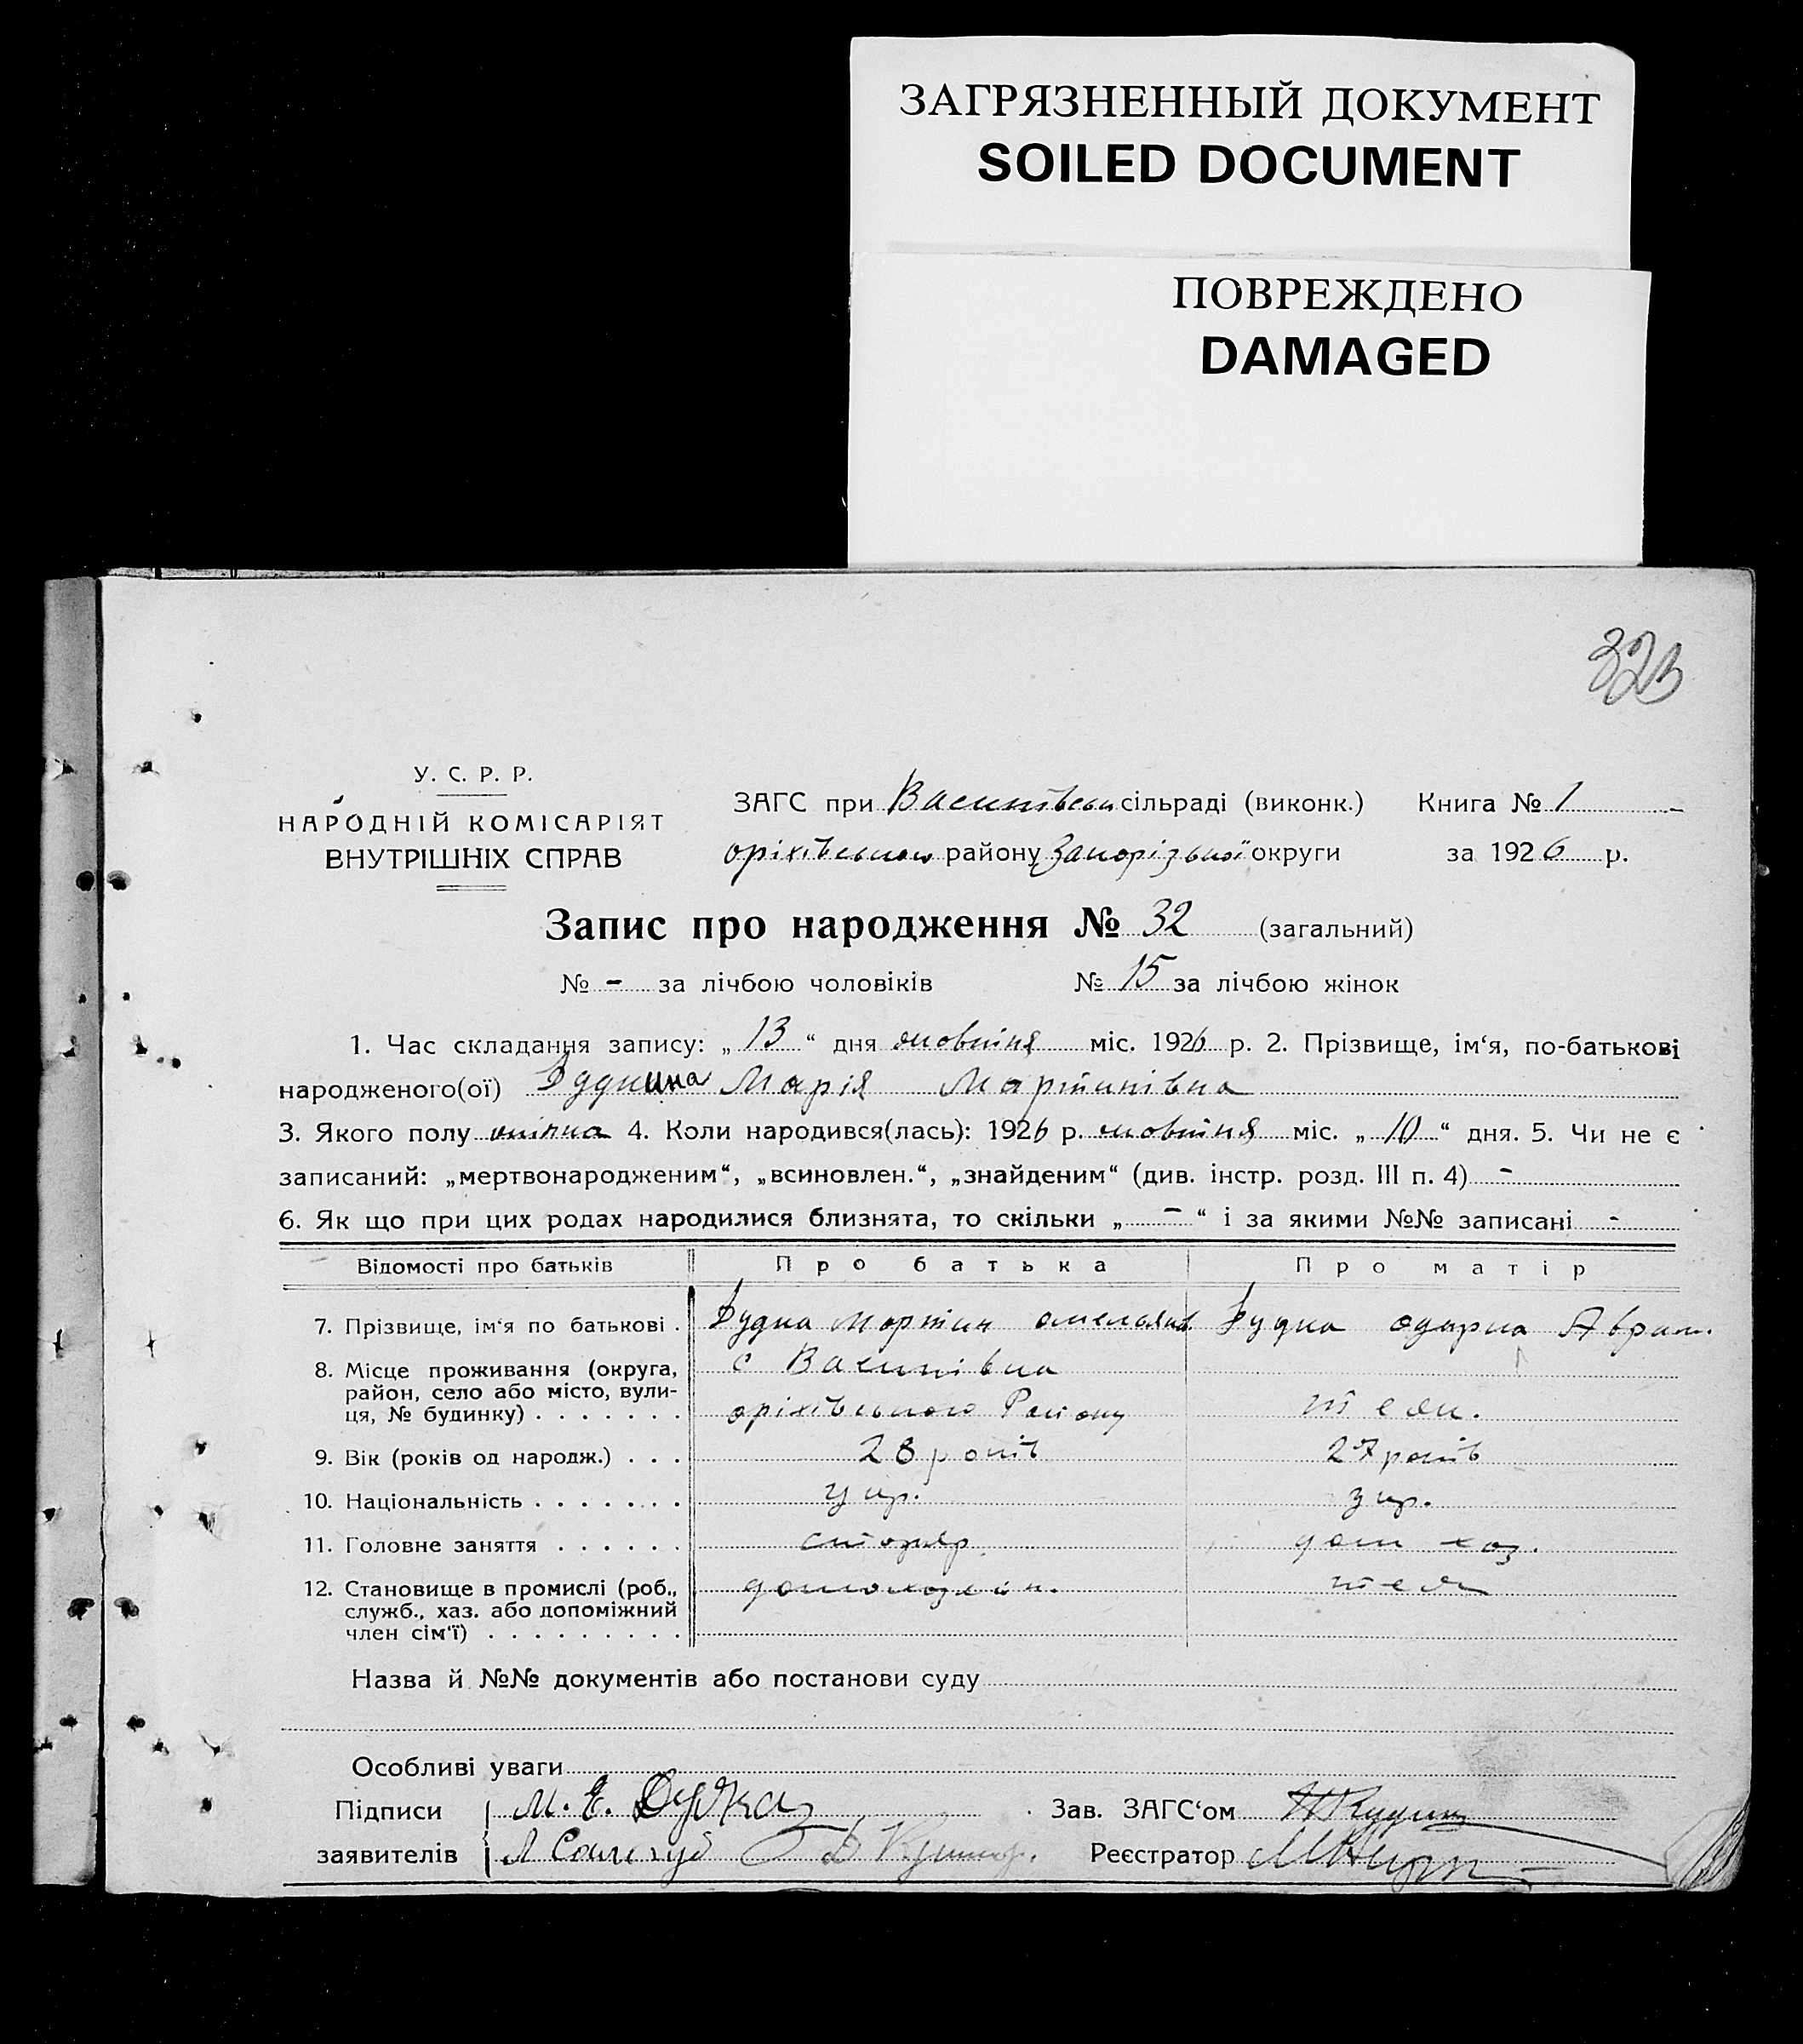 ЗАГРЯЗНЕННЫЙ ДОКУМЕНТ
SOILED DOCUMENT
ПОВРЕЖДЕНО
DAMAGED
323
У. С. Р. Р.
НАРОДНІЙ КОМІСАРІЯТ
ВНУТРІШНІХ СПРАВ
ЗАГС при Василівськ сільраді (виконк.) Книга № 1
оріхівського району Запорізької округи за 1926 р.
Запис про народження № 32 (загальний)
№ - за лічбою чоловіків № 15 за лічбою жінок
1. Час складання запису: „13“ дня жовтня міс. 1926 р. 2. Прізвище, ім‘я, по-батькові
народженого(ої) Марія Мартинівна
3. Якого полу жіноча 4. Коли народився(лась): 1926 р. жовтня міс. „10“ дня. 5. Чи не є
записаний: „мертвонародженим“, „всиновлен.“, „знайденим“ (див. інстр. розд. III п. 4) -
6. Як що при цих родах народилися близнята, то скільки „-“ і за якими №№ записані -
Відомості про батьків Про батька Про матір
7. Прізвище, ім‘я по батькові . Дудка Мартин омелянов. Дудка одарка Аврам.
8. Місце проживання (округа, с Василівка
район, село або місто, вули-
ця, № будинку) . . . . . . . оріхівського Району теж.
9. Вік (років од народж.) . . . 28 років 27 років
10. Національність . . . . . . . укр. укр.
11. Головне заняття . . . . . . столяр. дом хаз.
12. Становище в промислі (роб., теж
служб., хаз. або допоміжний
член сім‘ї) . . . . . . . . .
Назва й №№ документів або постанови суду
Особливі уваги
Підписи М. Е. Дудка Зав. ЗАГС‘ом
заявителів Реєстратор